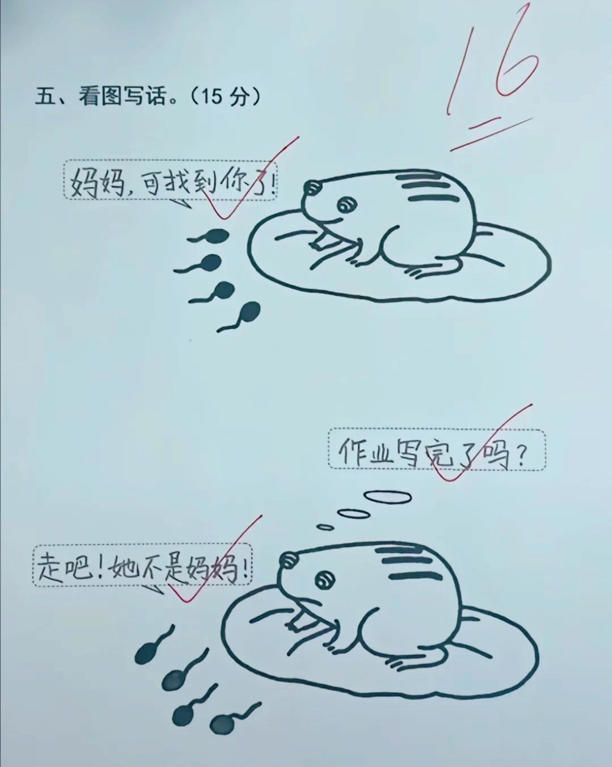 16
五、看图写话。（15分）
妈妈,可找到你了!
作业写完了吗?
走吧!她不是妈妈!